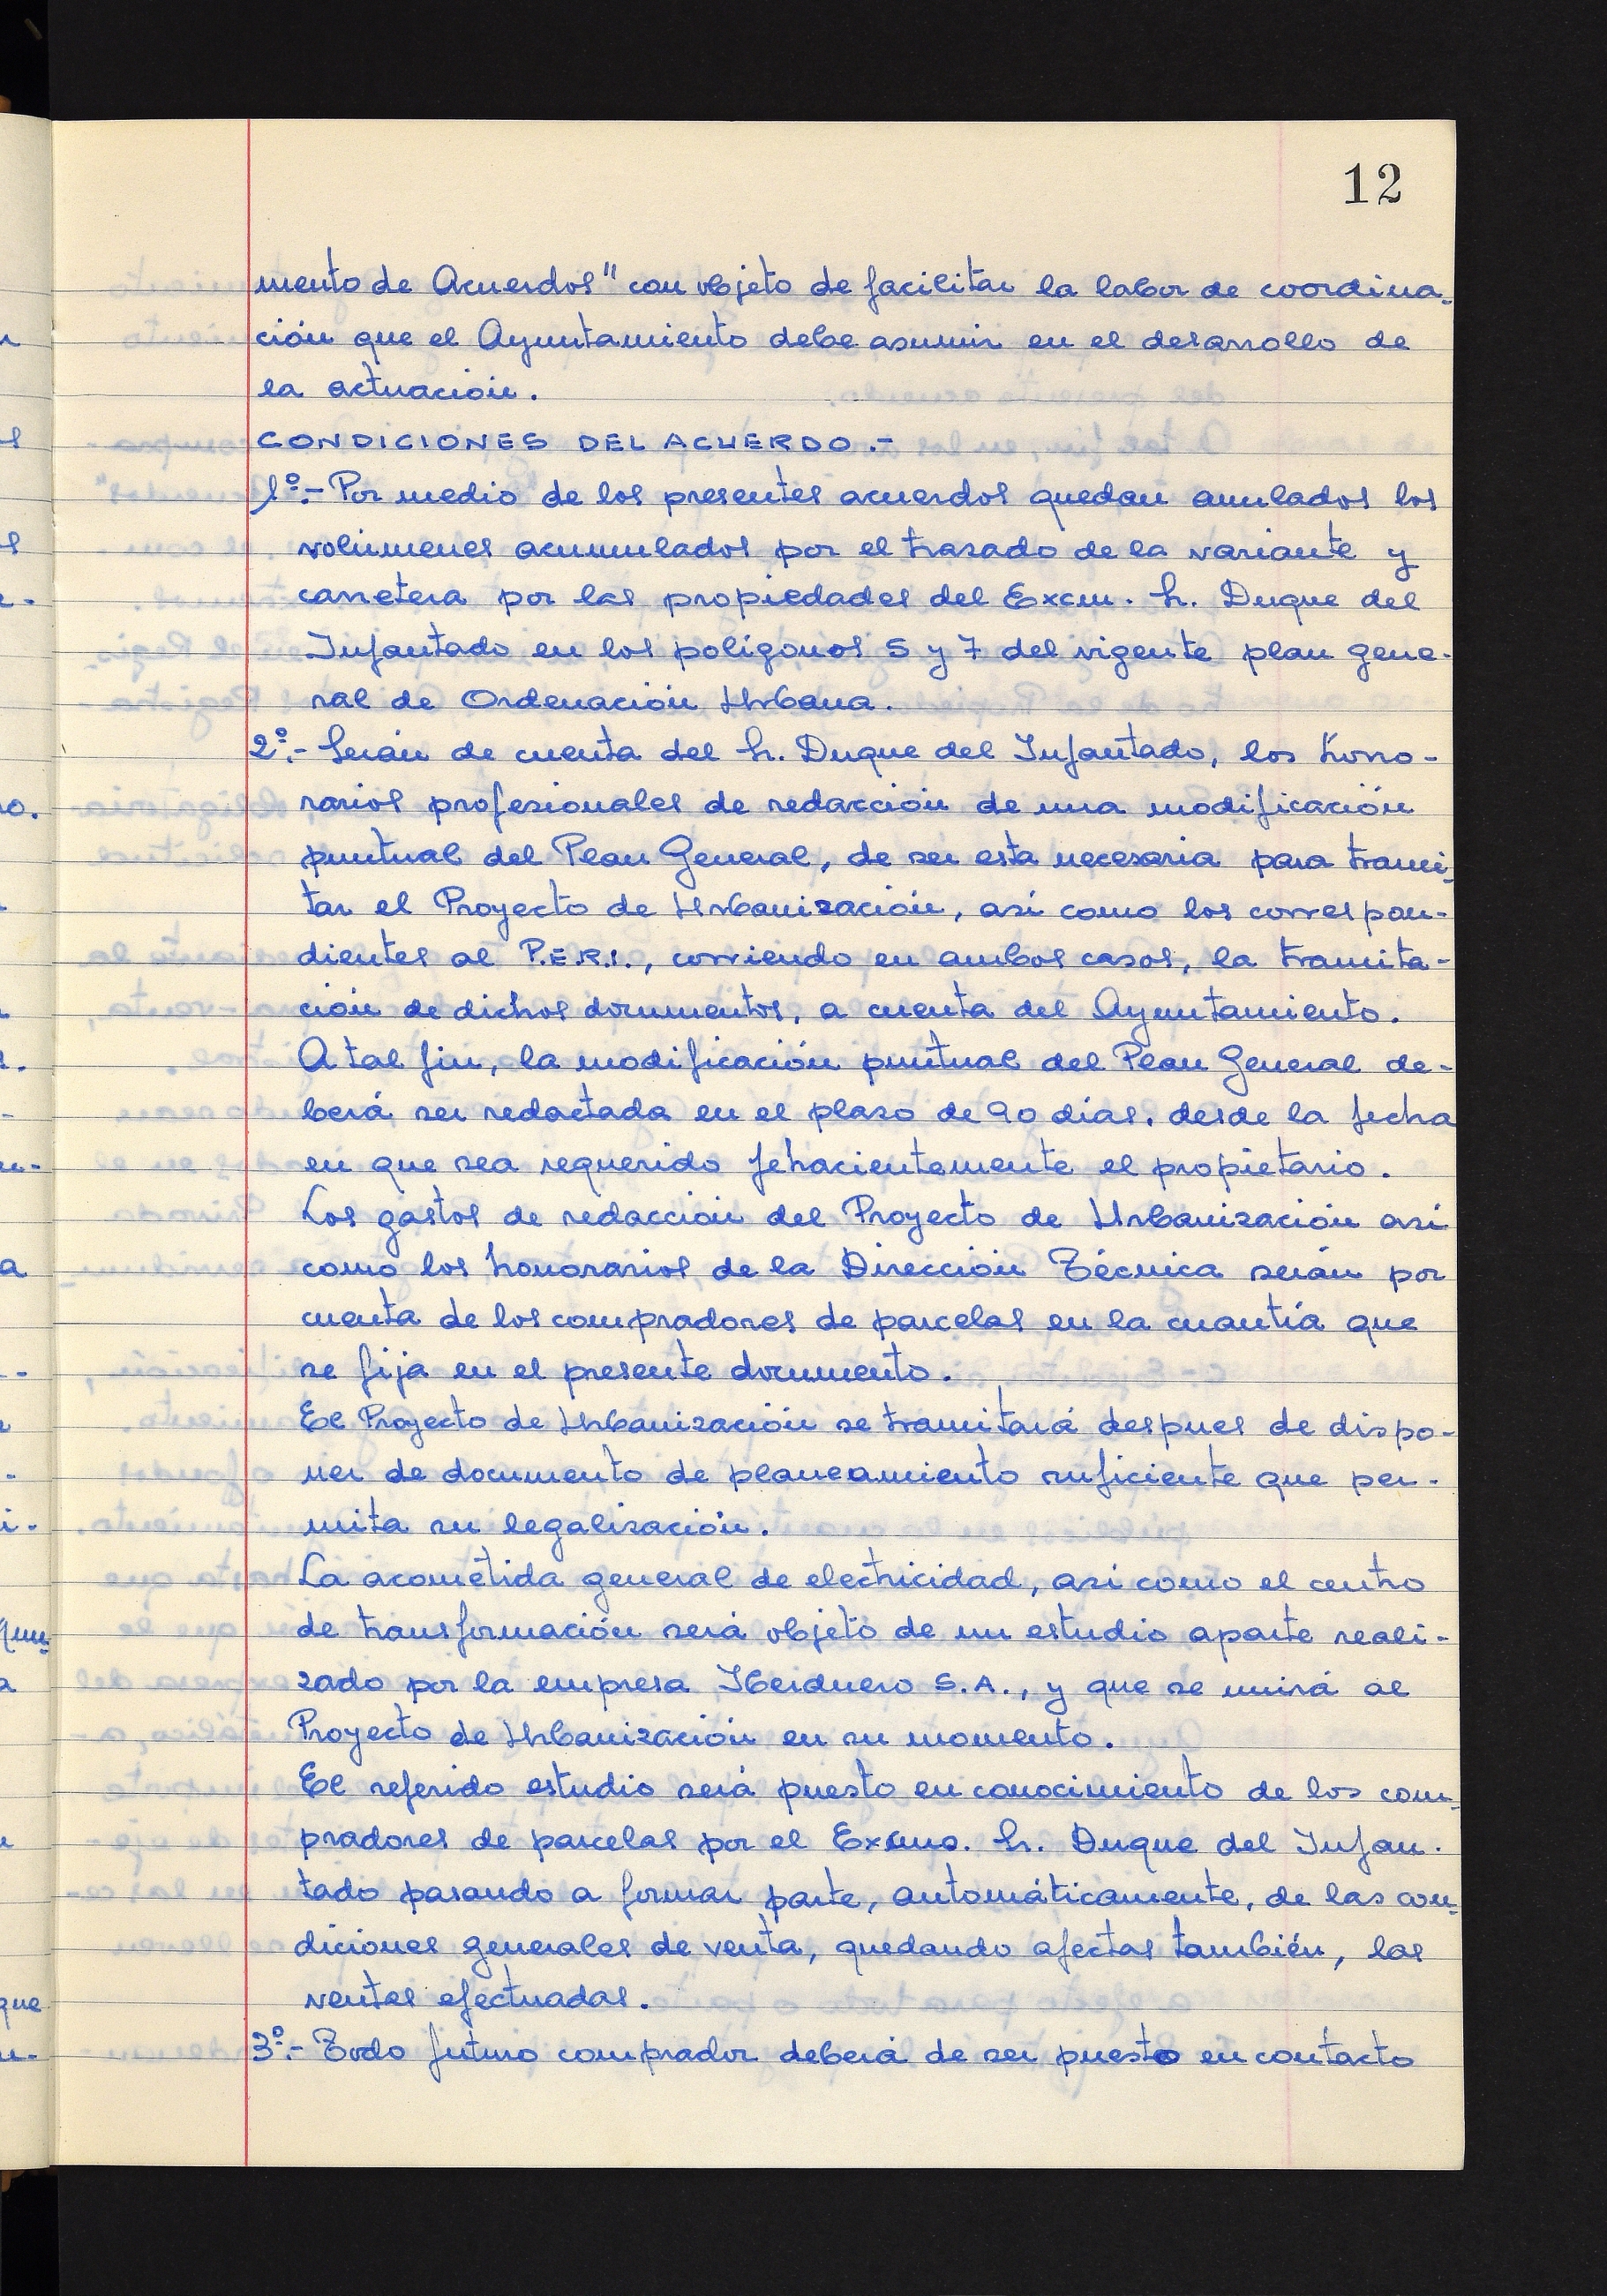 12
mento de Acuerdos" con objeto de facilitar la labor de coordina-
ción que el Ayuntamiento debe asumir en el desarrollo de
la actuación.
CONDICIONES DEL ACUERDO.-
1º.- Por medio de los presentes acuerdos quedan anulados los
volúmenes acumulados por el trazado de la variante y
carretera por las propiedades del Excm. Sr. Duque del
Infantado en los polígonos 5 y 7 del vigente plan gene-
ral de Ordenación Urbana.
2º.- Serán de cuenta del Sr. Duque del Infantado, los hono-
rarios profesionales de redacción de una modificación
puntual del Plan General, de ser esta necesaria para trami-
tar el Proyecto de Urbanización, así como los correspon-
dientes al P.E.R.I., corriendo en ambos casos, la tramita-
ción de dichos documentos, a cuenta del Ayuntamiento.
A tal fin, la modificación puntual del Plan General de-
berá ser redactada en el plazo de 90 días, desde la fecha
en que sea requerido fehacientemente el propietario.
Los gastos de redacción del Proyecto de Urbanización así
como los honorarios de la Dirección Técnica serán por
cuenta de los compradores de parcelas en la cuantía que
se fija en el presente documento.
El Proyecto de Urbanización se tramitará despues de dispo-
ner de documento de planeamiento suficiente que per-
mita su legalización.
La acometida general de electricidad, así como el centro
de transformación será objeto de un estudio aparte reali-
zado por la empresa Iberduero S.A., y que se unirá al
Proyecto de Urbanización en su momento.
El referido estudio será puesto en conocimiento de los com-
pradores de parcelas por el Excmo. Sr. Duque del Infan-
tado pasando a formar parte, automáticamente, de las con-
diciones generales de venta, quedando afectas también, las
ventas efectuadas.
3º.- Todo futuro comprador deberá de ser puesto en contacto